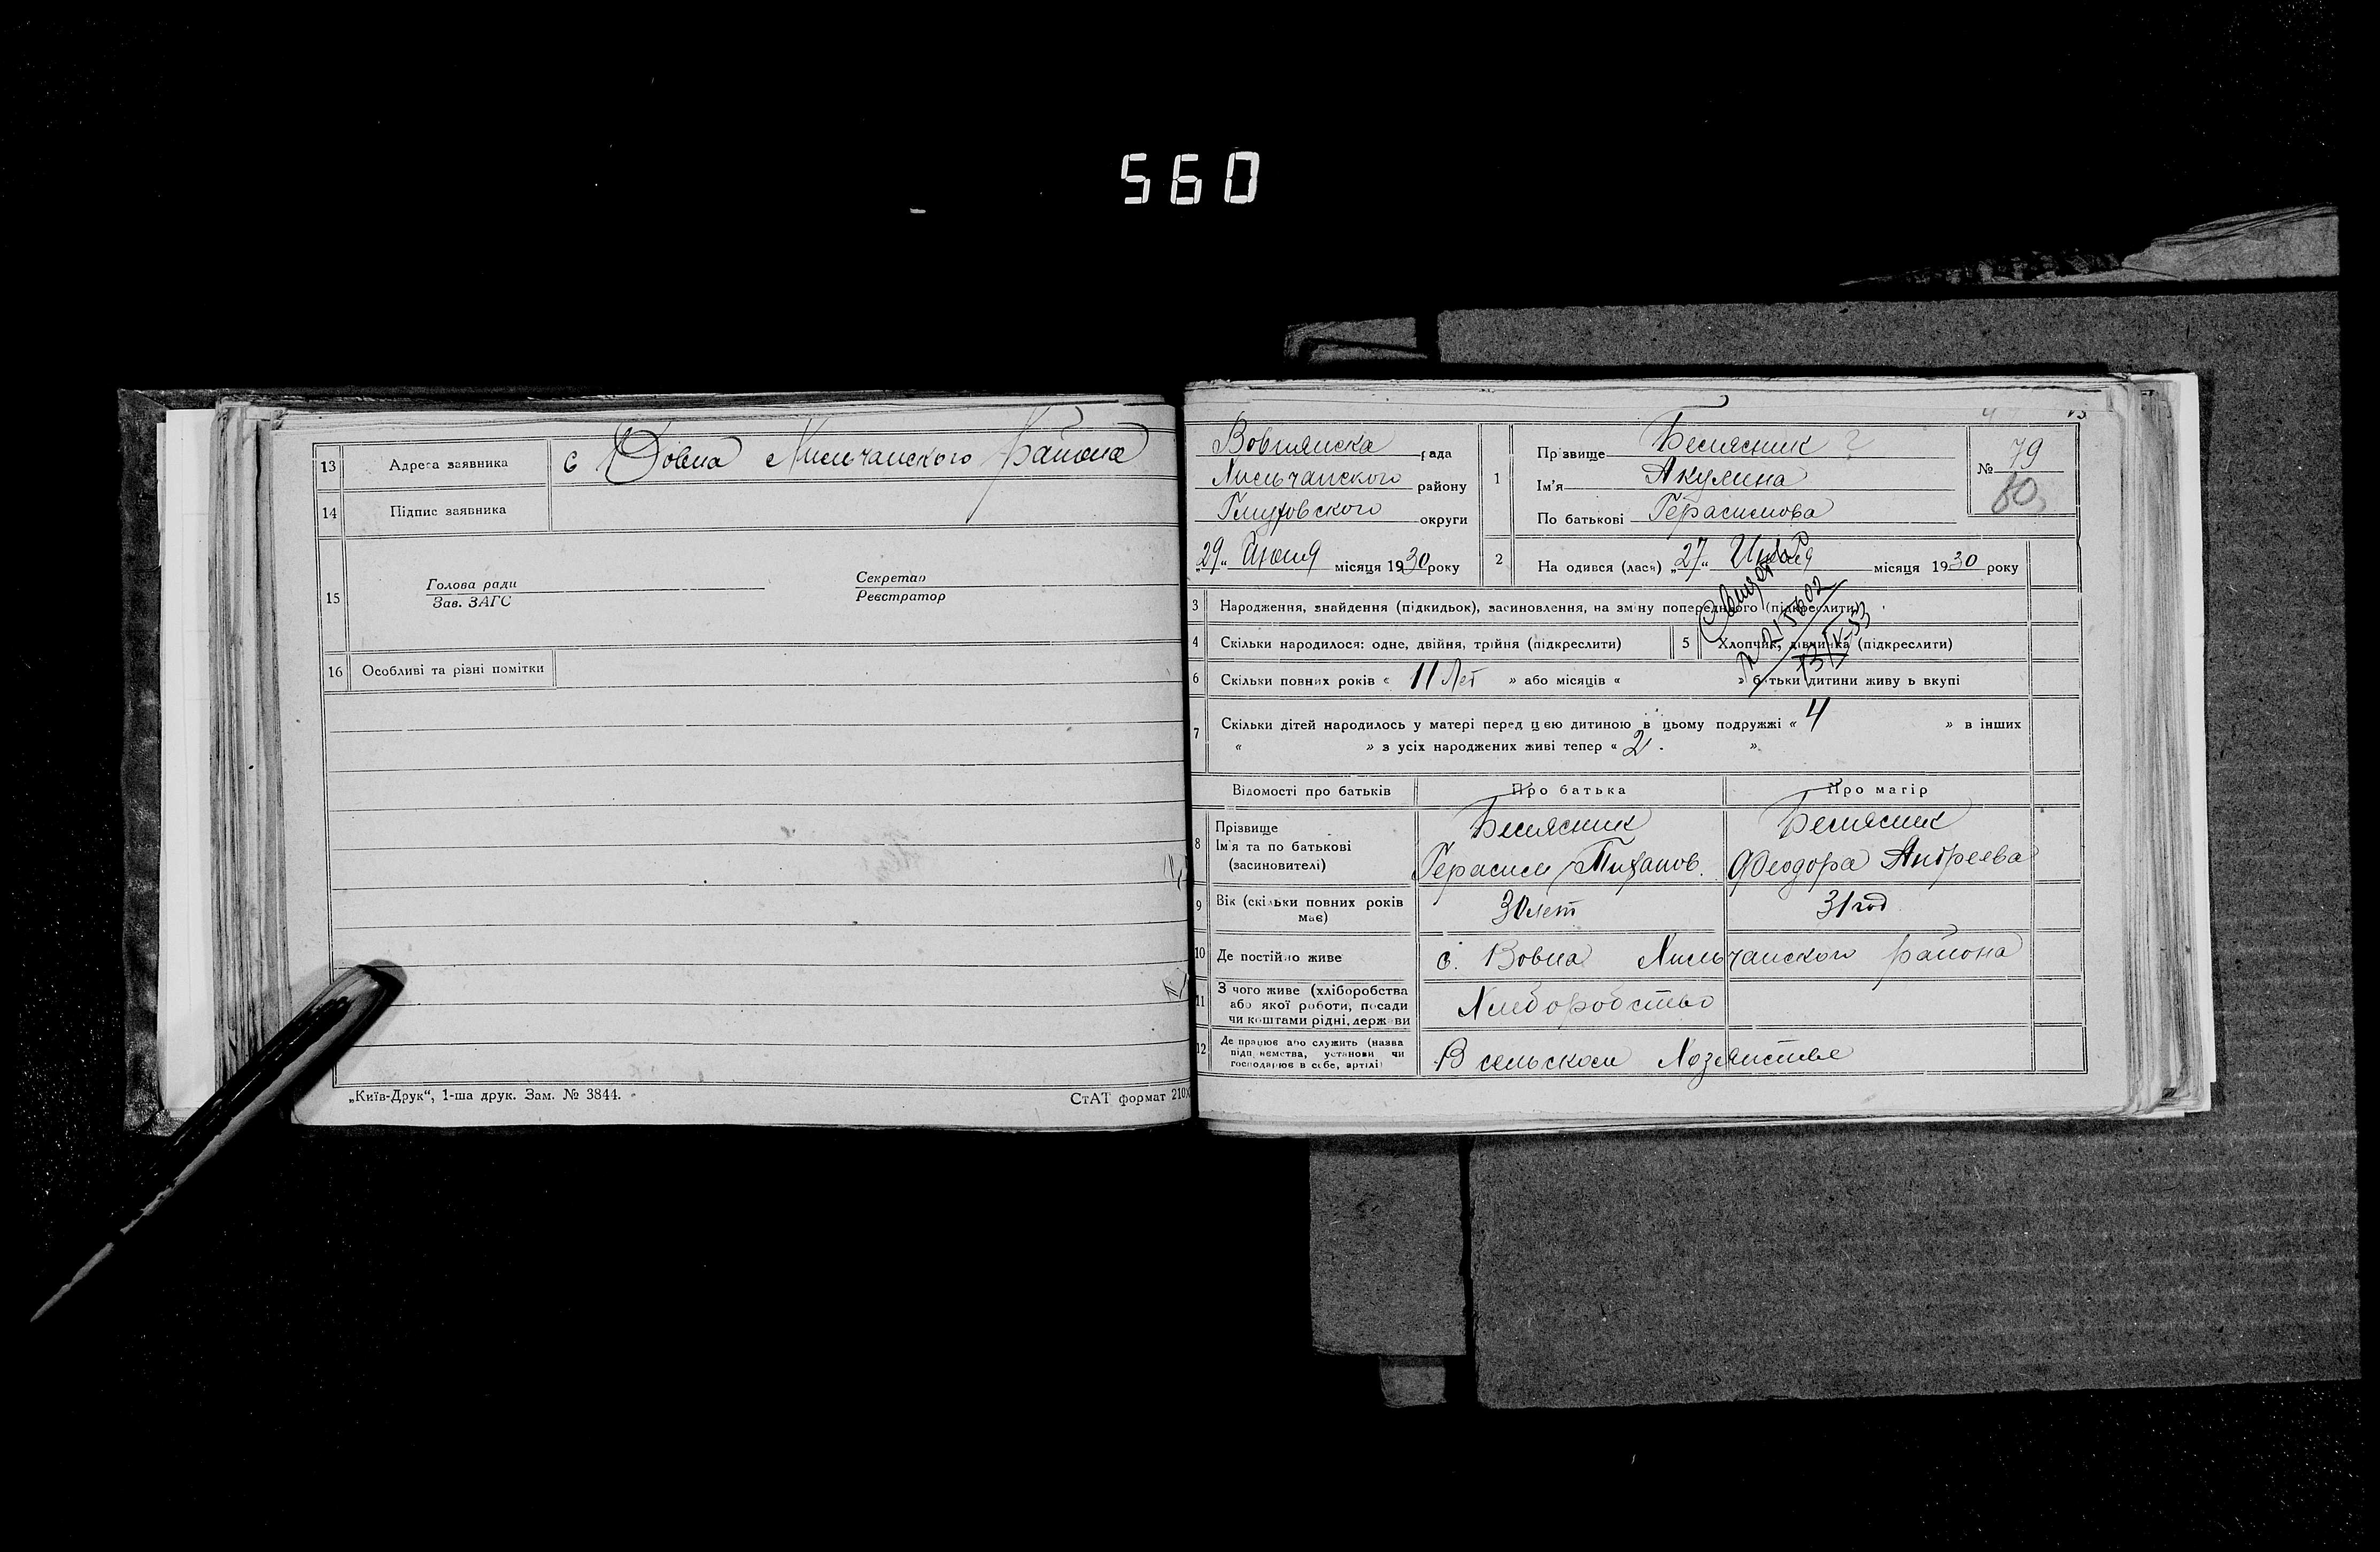 560
13 Адреса заявника с Вовна Хильчанского Района
14 Підпис заявника
15 Голова ради Секретар
Зав. ЗАГС Реєстратор
16 Особливі та різні помітки
„Київ-Друк“, 1-ша друк. Зам. № 3844.
СтАТ формат 210х
Вовнянска рада
Хильчанского району
Глуховского округи
„29„ Июня місяця 1930 року
1 Прізвище
Ім'я Акулина
По батькові Герасимова
№ 79
60
2 На одився (лася) „27„ місяця 1930 року
3 Народження, знайдення (підкидьок), засиновлення, на зміну попереднього (підкреслити)
4 Скільки народилося: одне, двійня, трійня (підкреслити)
5 Хлопчик, дівчинка (підкреслити)
6 Скільки повних років « 11 Лет » або місяців « » батьки дитини живуть вкупі
7 Скільки дітей народилось у матері перед цією дитиною в цьому подружжі « 4 » в інших
« » з усіх народжених живі тепер « 2 . »
Відомості про батьків Про батька Про матір
8 Прізвище
Ім'я та по батькові
(засиновителі) Герасим Феодора Андреева
9 Вік (скільки повних років має) 30 лет 31 год
10 Де постійно живе с. Вовна Хильчанского района
11 З чого живе (хліборобства
або якої роботи, посади
чи коштами рідні, держави Хлебородство
12 Де працює або служить (назва
підприємства, установи чи
господарює в себе, артілі) В сельском Хозяистве